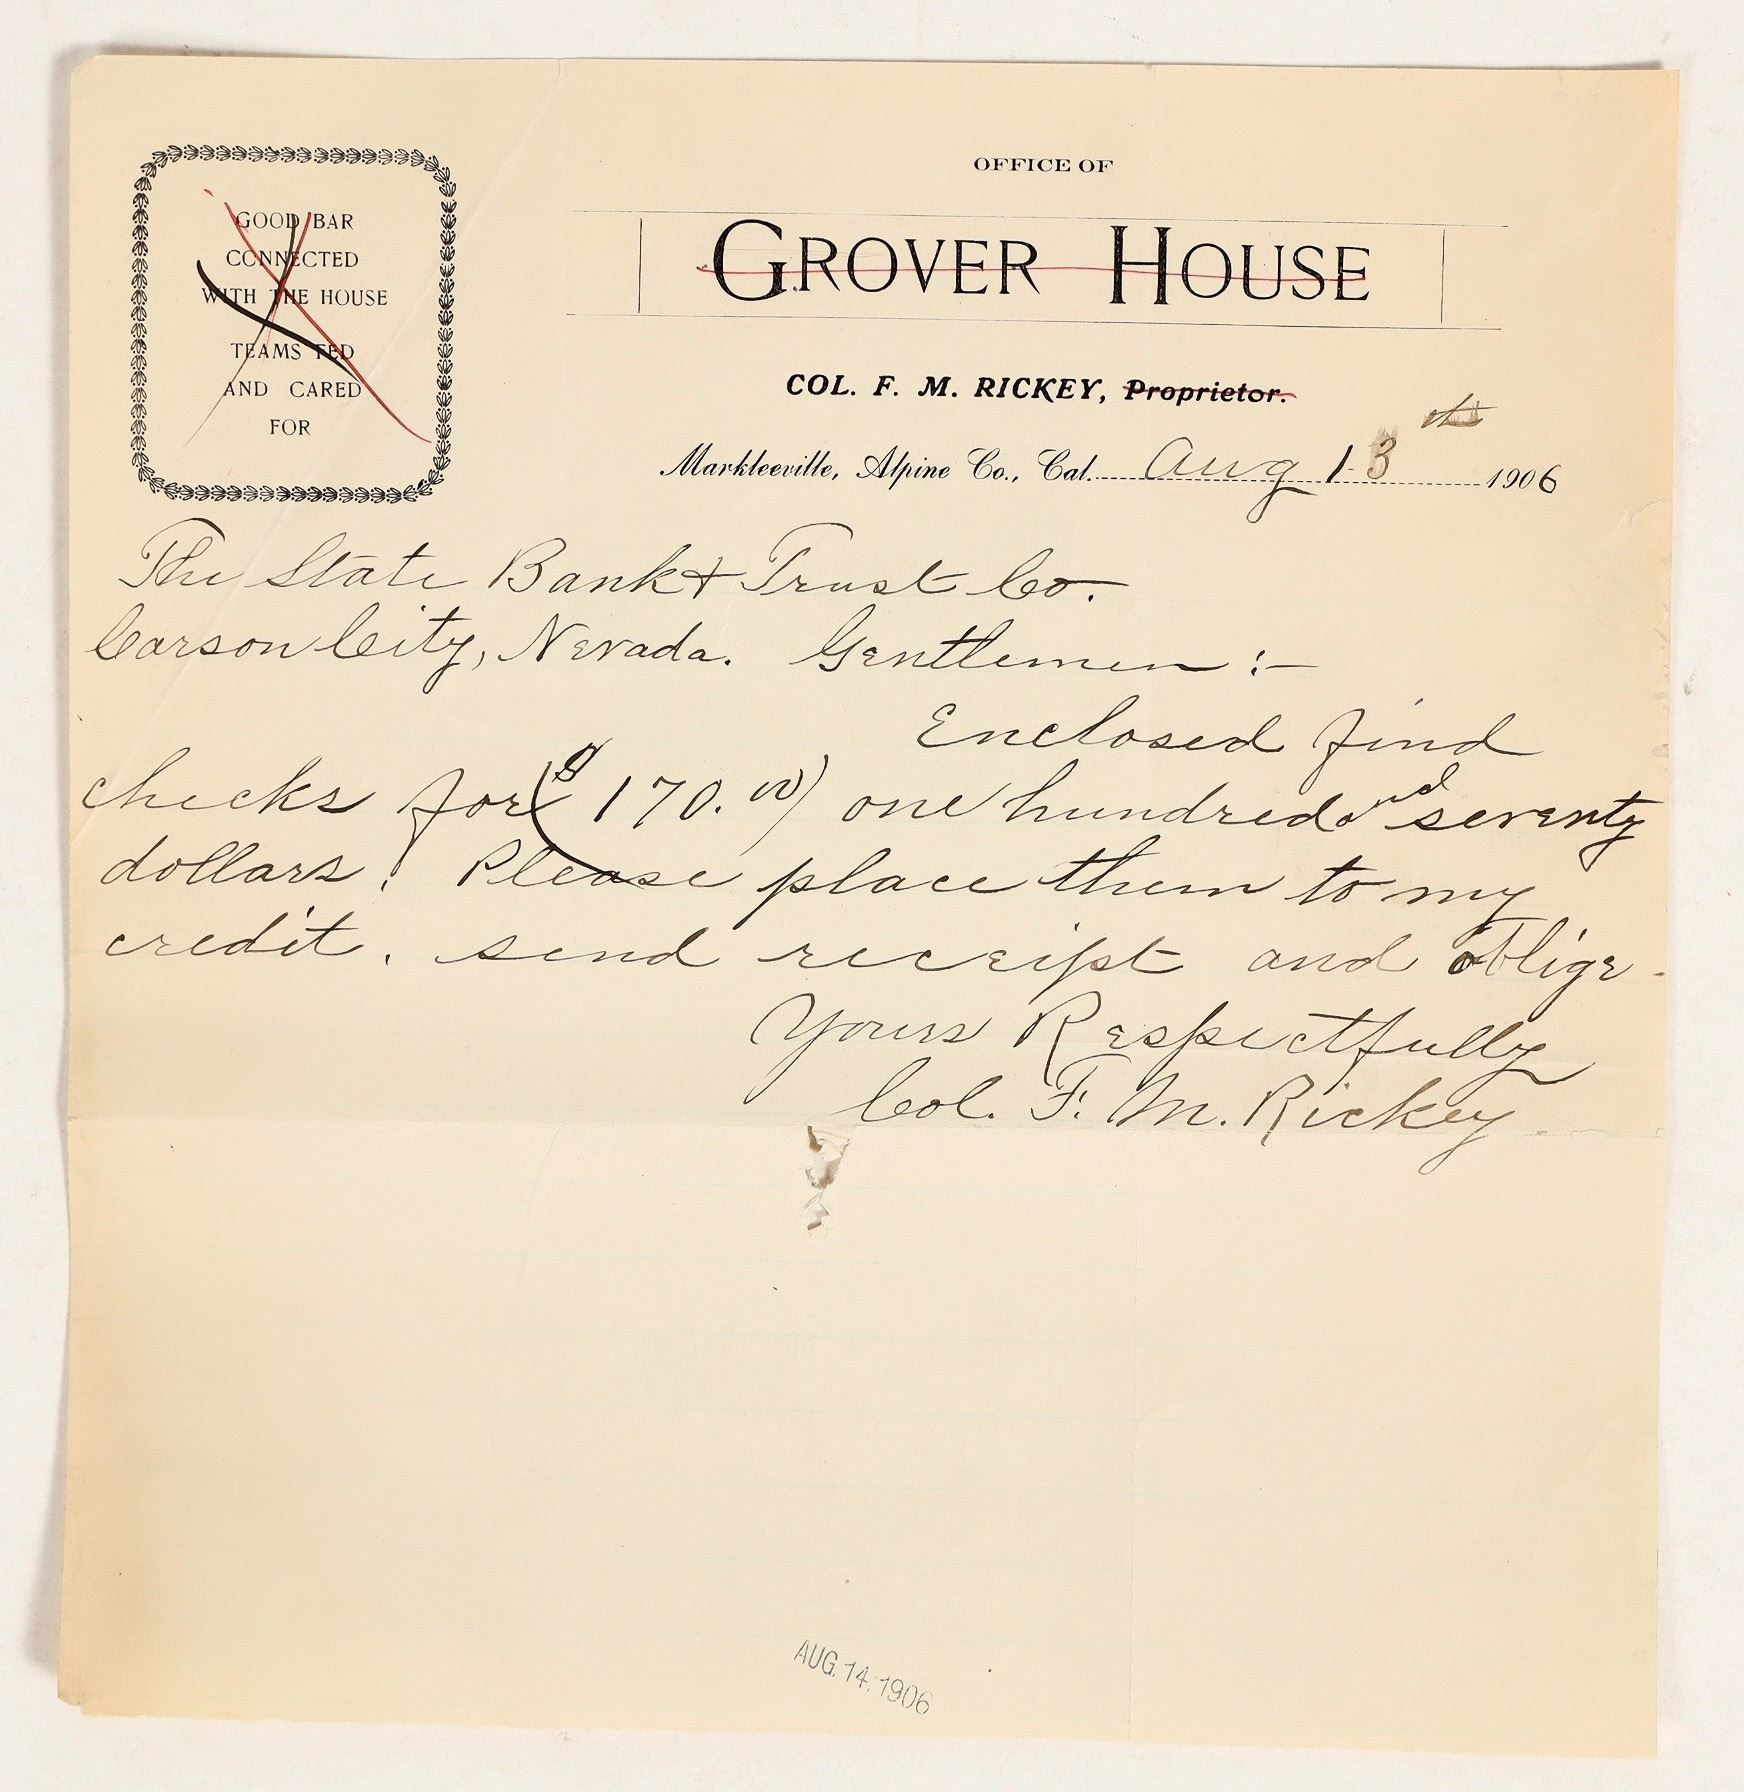 OFFICE OF
GROVER HOUSE
COL. F. M. RICKEY, Proprietor.
GOOD BAR
CONNECTED
WITH THE HOUSE
TEAMS FED
AND CARED
FOR
Markleeville, Alpine Co., Cal. Aug 13th 1906
The State Bank & Trust Co.
Carson City, Nevada. Gentlemen:-
Enclosed find
checks for ($170.00) one hundred and seventy
dollars. Please place them to my
credit. send receipt and oblige.
Yours Respectfully
Col. F. M. Rickey
AUG. 14. 1906